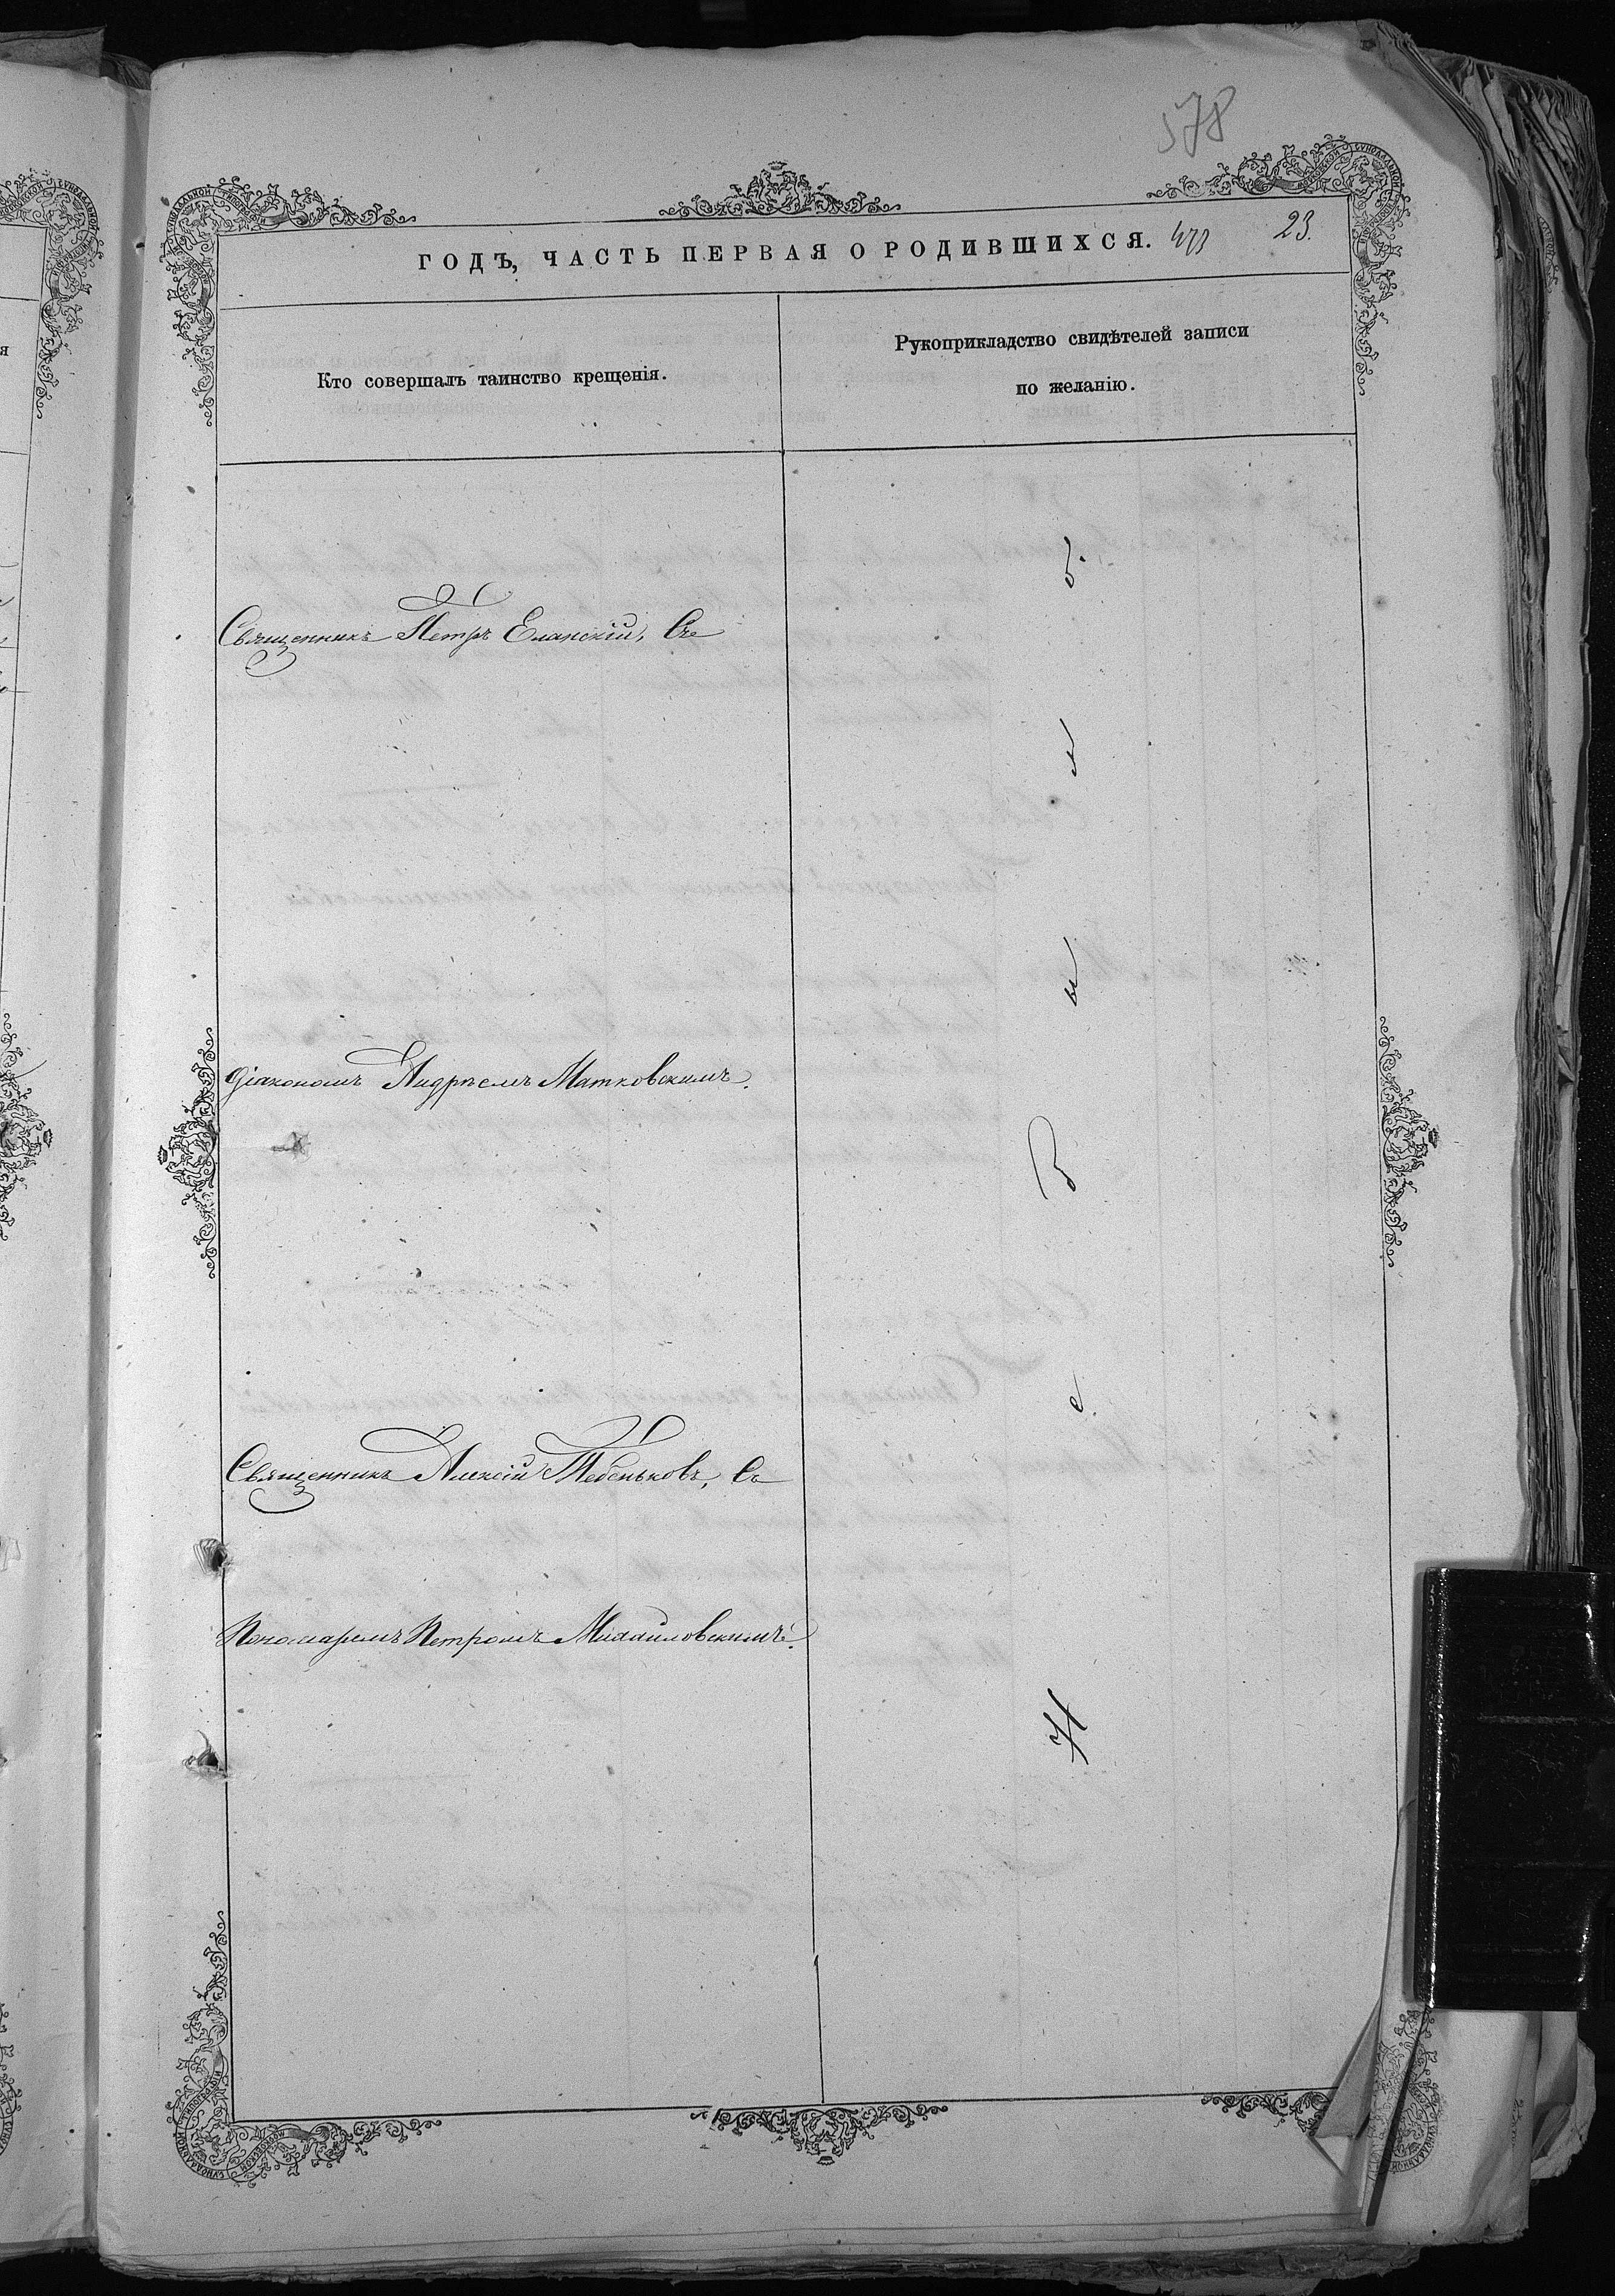 578
ГОДЪ, ЧАСТЬ ПЕРВАЯ О РОДИВШИХСЯ. 23.
Кто совершалъ таинство крещенія.
Рукоприкладство свидѣтелей записи
по желанію.
Священникъ Петръ Еланскій, Съ
Діакономъ Андреемъ Матковскимъ.
Священникъ Алексій Тебеньковъ, Съ
Пономаремъ Петромъ Михайловскимъ.
Не было